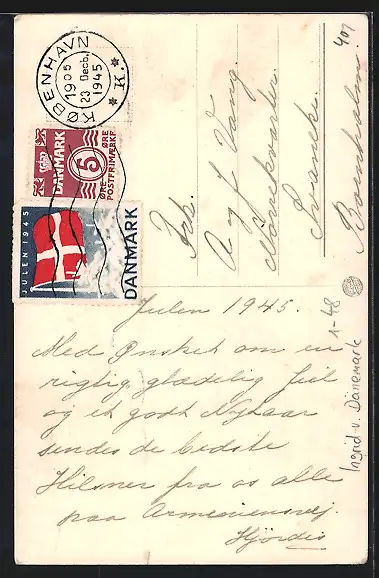 KØBENHAVN
1905
23. Decb.
1945
* K. *
DANMARK
6
ØRE ØRE
POSTFRIMÆRKE
JULEN 1945
DANMARK
407
Frk.
A og J Vang.
Svaneke.
Bornholm.
Julen 1945.
Med Ønsket om en
rigtig glædelig Jul
og et godt Nytaar
sendes de bedste
Hilsner fra os alle
paa Armeniensvej.
Hjördis
1-48
Ingrid v. Dänemark